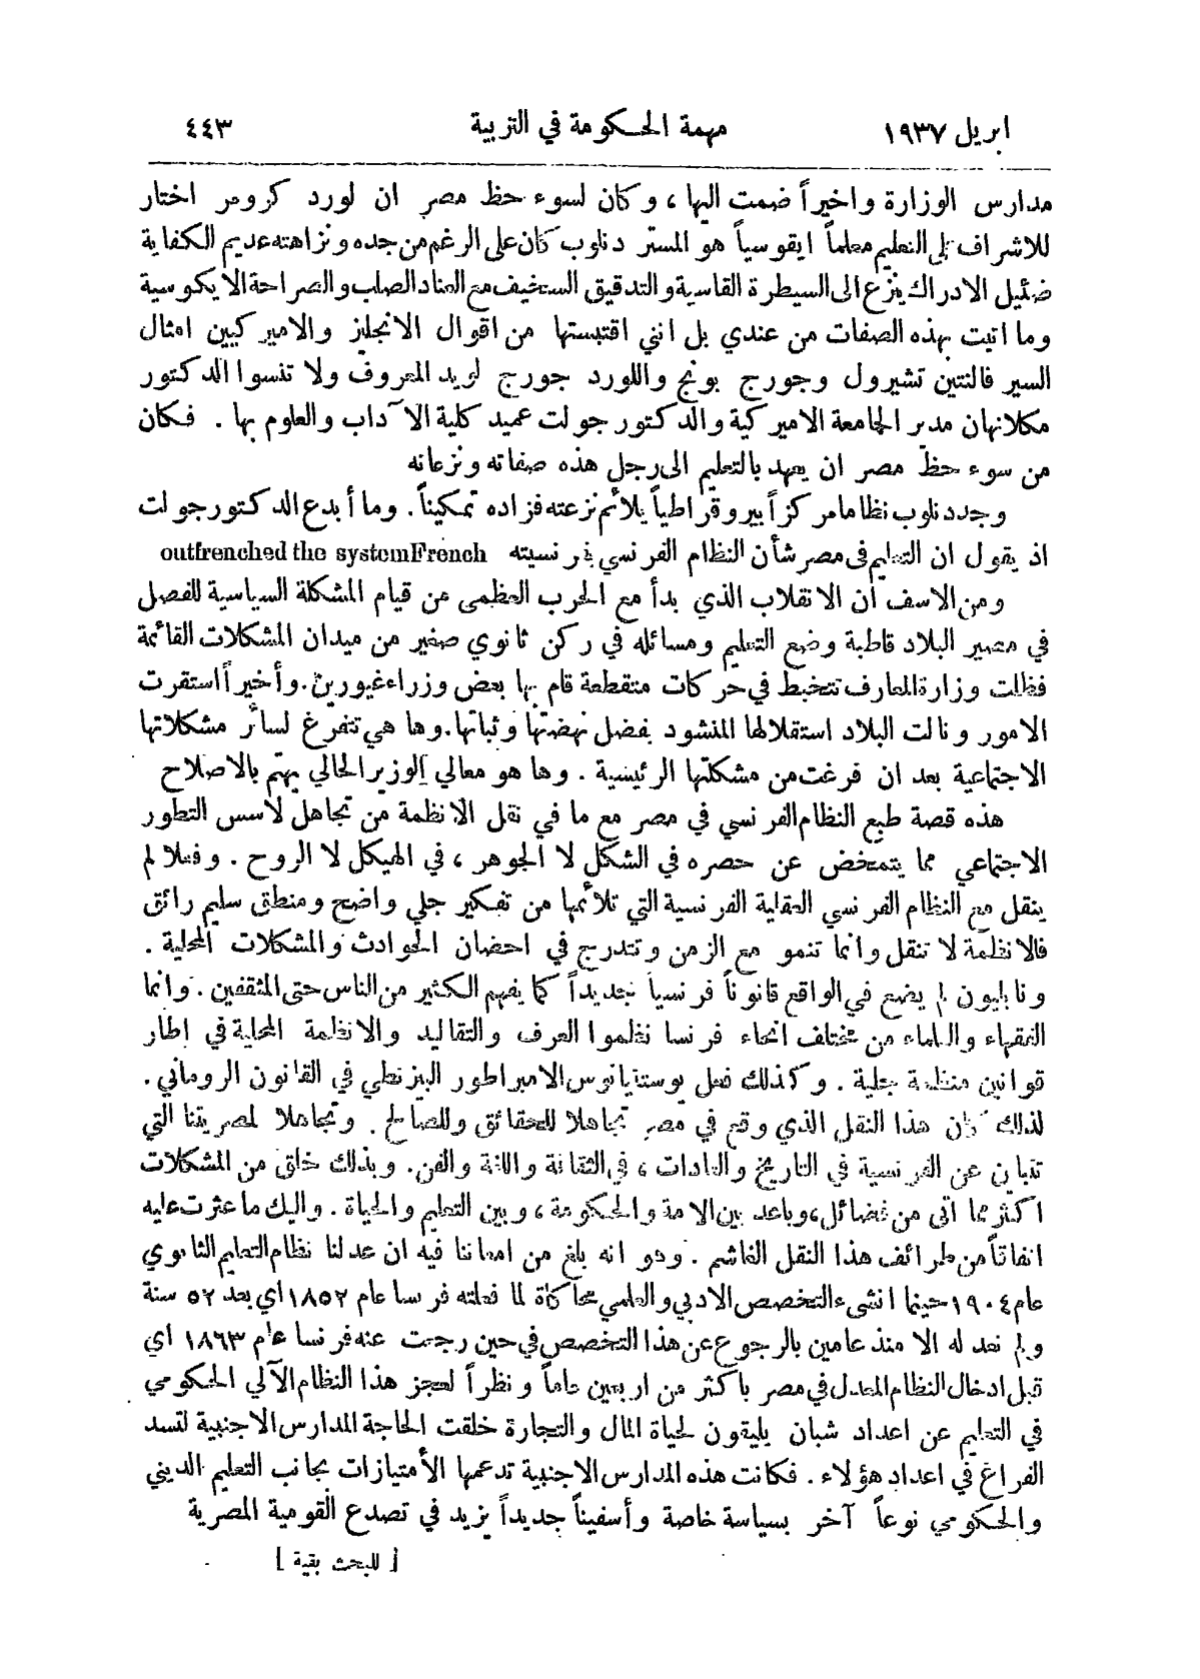 ابريل ١٩٣٧ مهمة الحكومة في التربية ٤٤٣
مدارس الوزارة واخيراً ضمت اليها ، وكان لسوء حظ مصر ان لورد كرومر اختار
للاشراف على التعليم معلماً ايقوسياً هو المستر دنلوب كان على الرغم من جده ونزاهته عديم الكفاية
ضئيل الادراك ينزع الى السيطرة القاسية والتدقيق السخيف مع العناد الصلب والصراحة الايكوسية
وما اتيت بهذه الصفات من عندي بل انني اقتبستها من اقوال الانجليز والامير كيين امثال
السير فالنتين تشيرول وجورج يونج واللورد جورج لويد المعروف ولا تنسوا الدكتور
مكلانهان مدير الجامعة الاميركية والدكتور جولت عميد كلية الآداب والعلوم بها . فكان
من سوء حظّ مصر ان يعهد بالتعليم الى رجل هذه صفاته ونزعاته
وجد دنلوب نظاما مركزاً بيروقراطياً يلائم نزعته فزاده تمكيناً . وما أبدع الدكتور جولت
اذ يقول ان التعليم فى مصر شأن النظام الفرنسي بذ فرنسيته outfrenched the systemFrench
ومن الاسف ان الانقلاب الذي بدأ مع الحرب العظمى من قيام المشكلة السياسية للفصل
في مصير البلاد قاطبة وضع التعليم ومسائله في ركن ثانوي صغير من ميدان المشكلات القائمة
فظلت وزارة المعارف تتخبط في حركات متقطعة قام بها بعض وزراء غيورين . وأخيراً استقرت
الامور ونالت البلاد استقلالها المنشود بفضل نهضتها وثباتها . وها هي تتفرغ لسائر مشكلاتها
الاجتماعية بعد ان فرغت من مشكلتها الرئيسية . وها هو معالي الوزير الحالي يهتم بالاصلاح
هذه قصة طبع النظام الفرنسي في مصر مع ما في نقل الانظمة من تجاهل لاسس التطور
الاجتماعي مما يتمخض عن حصره في الشكل لا الجوهر ، في الهيكل لا الروح . وفعلا لم
ينقل مع النظام الفرنسي العقلية الفرنسية التي تلائمها من تفكير جلي واضح ومنطق سليم رائق
فالانظمة لا تنقل وانما تنمو مع الزمن وتتدرج في احضان الحوادث والمشكلات المحلية .
ونابليون لم يضع في الواقع قانوناً فرنسياً جديداً كما يفهم الكثير من الناس حتى المثقفين . وانما
الفقهاء والعلماء من مختلف انحاء فرنسا نظموا العرف والتقاليد والانظمة المحلية في اطار
قوانين منظمة جلية . وكذلك فعل يوستنيانوس الامبراطور البيزنطي في القانون الروماني .
لذلك كان هذا النقل الذي وقع في مصر تجاهلا للحقائق وللصالح . وتجاهلا لمصريتنا التي
تتباين عن الفرنسية في التاريخ والعادات ، في الثقافة واللغة والفن . وبذلك خلق من المشكلات
اكثر مما اتى من فضائل ، وباعد بين الامة والحكومة ، وبين التعليم والحياة . واليك ما عثرت عليه
اتفاقاً من طرائف هذا النقل الغاشم . وهو انه بلغ من امعاننا فيه ان عدلنا نظام التعليم الثانوي
عام ١٩٠٤ حينما انشىء التخصص الادبي والعلمي محاكاة لما فعلته فرنسا عام ١٨٥٢ أي بعد ٥٢ سنة
ولم نعد له الا منذ عامين بالرجوع عن هذا التخصص في حين رجعت عنه فرنسا عام ١٨٦٣ اي
قبل ادخال النظام المعدل في مصر باكثر من اربعين عاماً ونظراً لعجز هذا النظام الآلي الحكومي
في التعليم عن اعداد شبان يليقون لحياة المال والتجارة خلقت الحاجة المدارس الاجنبية لتسد
الفراغ في اعداد هؤلاء . فكانت هذه المدارس الاجنبية تدعمها الأمتيازات بجانب التعليم الديني
والحكومي نوعاً آخر بسياسة خاصة وأسفيناً جديداً يزيد في تصدع القومية المصرية
[ للبحث بقية ]